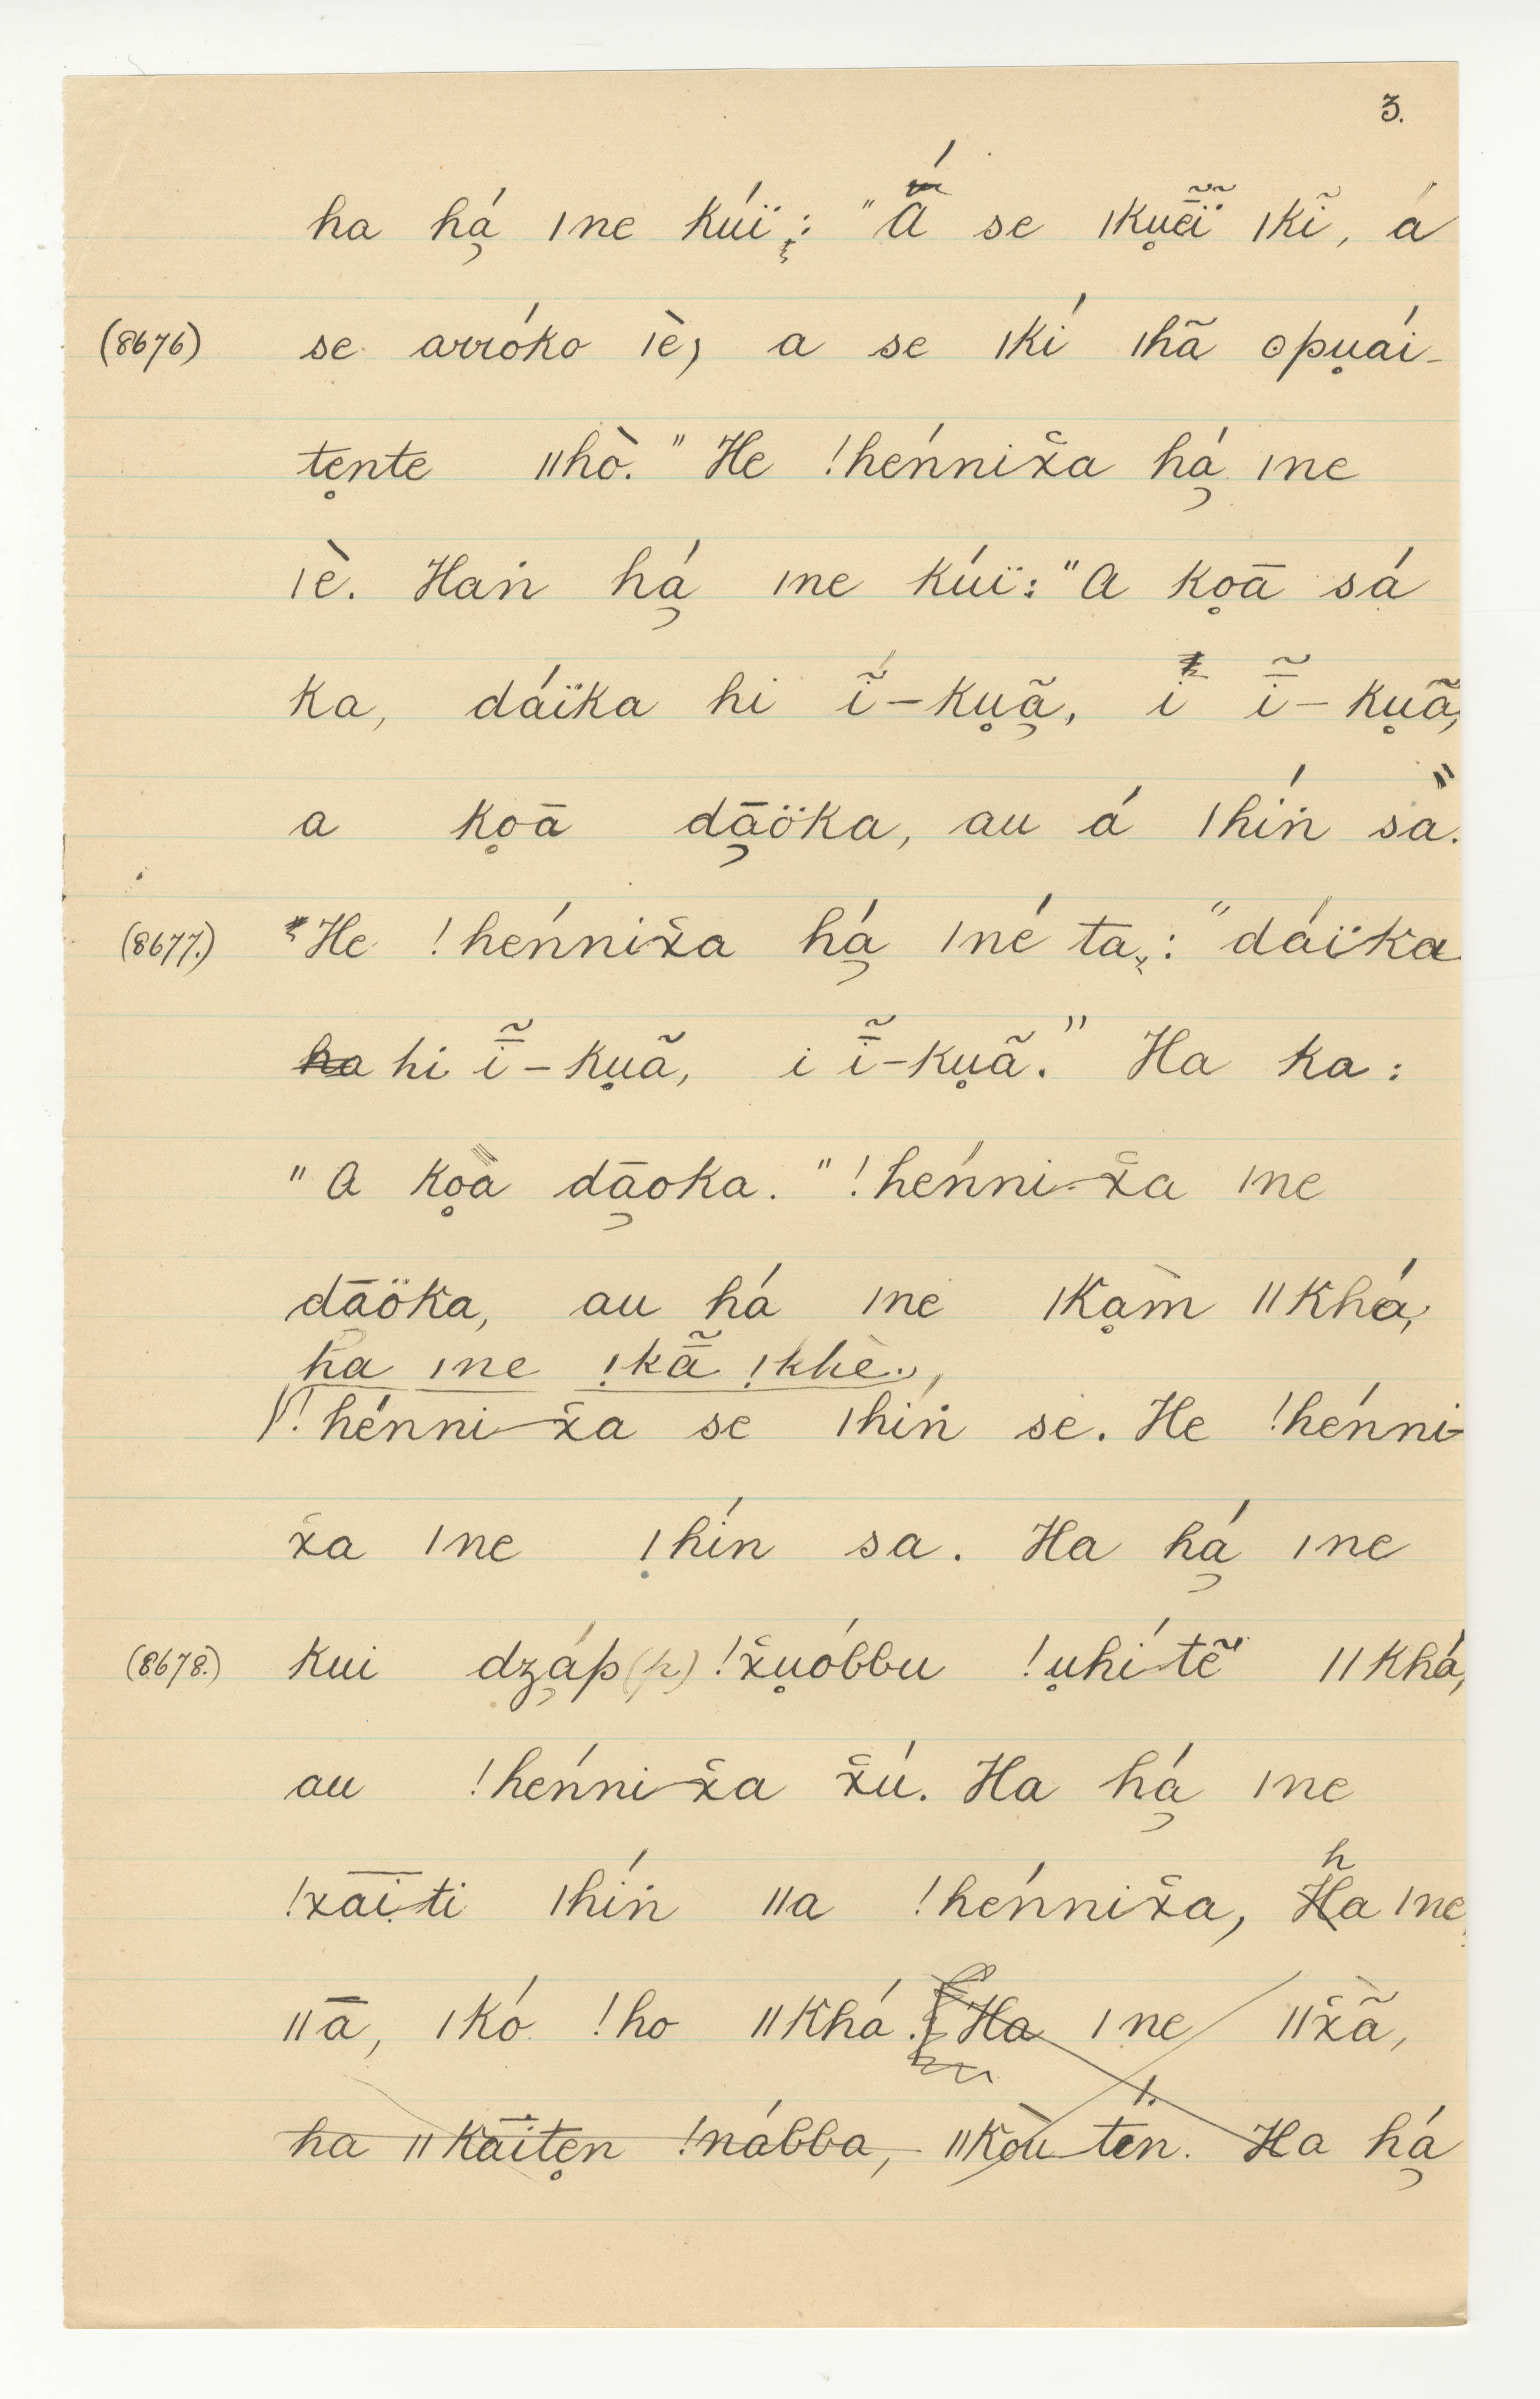 3.
ha há̡ ǀne kúï: "Á se ǀku̥ē̃ï̃ ǀkĩ, á
(8676) se arróko ǀè, a se ǀkí ǀhã ʘpu̥ái-
te̥nte ǁhò." He !héṅnix̌a há̡ ǀne
ǀè. Haṅ há̡ ǀne kúï: "A ko̥ā sá
ka, dáïka hi ĩ-ku̥ã̡, i ī̃-ku̥ã,
a ko̥ā dā̡öka, au á ǀhíṅ sa."
(8677.) He !héṅnix̌a há̡ ǀné ta: "dáïka
ha hi ī̃-ku̥ã, i ī̃-ku̥ã." Ha ka:
"A ko̥à dā̡oka." !héṅni-x̌a ǀne
dāöka, au há ǀne ǀkḁm̀ ǁkhá,
ha ǀne !kā̃ !khè,
!hénni-x̌a se ǀhíṅ se. He !hénni-
x̌a ǀne ǀhín sa. Ha há̡ ǀne
(8678.) kui dzá̡p(p) !x̌u̥óbbu !u̥hí-tẽ ǁkhá,
au !héṅni-x̌a x̌ú. Ha há̡ ǀne
!xāi-ti ǀhíṅ ǁa !héṅnix̌a, ha ǀne
ǁā, ǀkó !ho ǁkhá. Ha ǀne ǁx̌ã̀,
ha ǁkāīte̥n !nábba, ǁkòu tén. Ha há̡